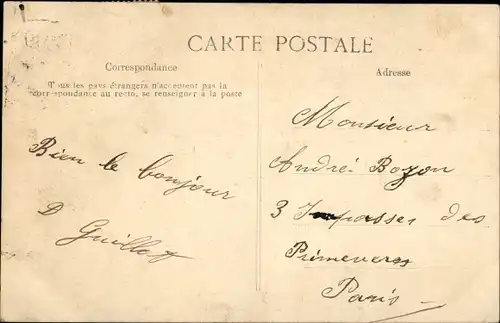 CARTE POSTALE
Correspondance
Tous les pays étrangers n'acceptent pas la
correspondance au recto, se renseigner à la poste
Adresse
Bien le bonjour
D Guillot
Monsieur
André Bozon
3 Impasses des
Primevères
Paris